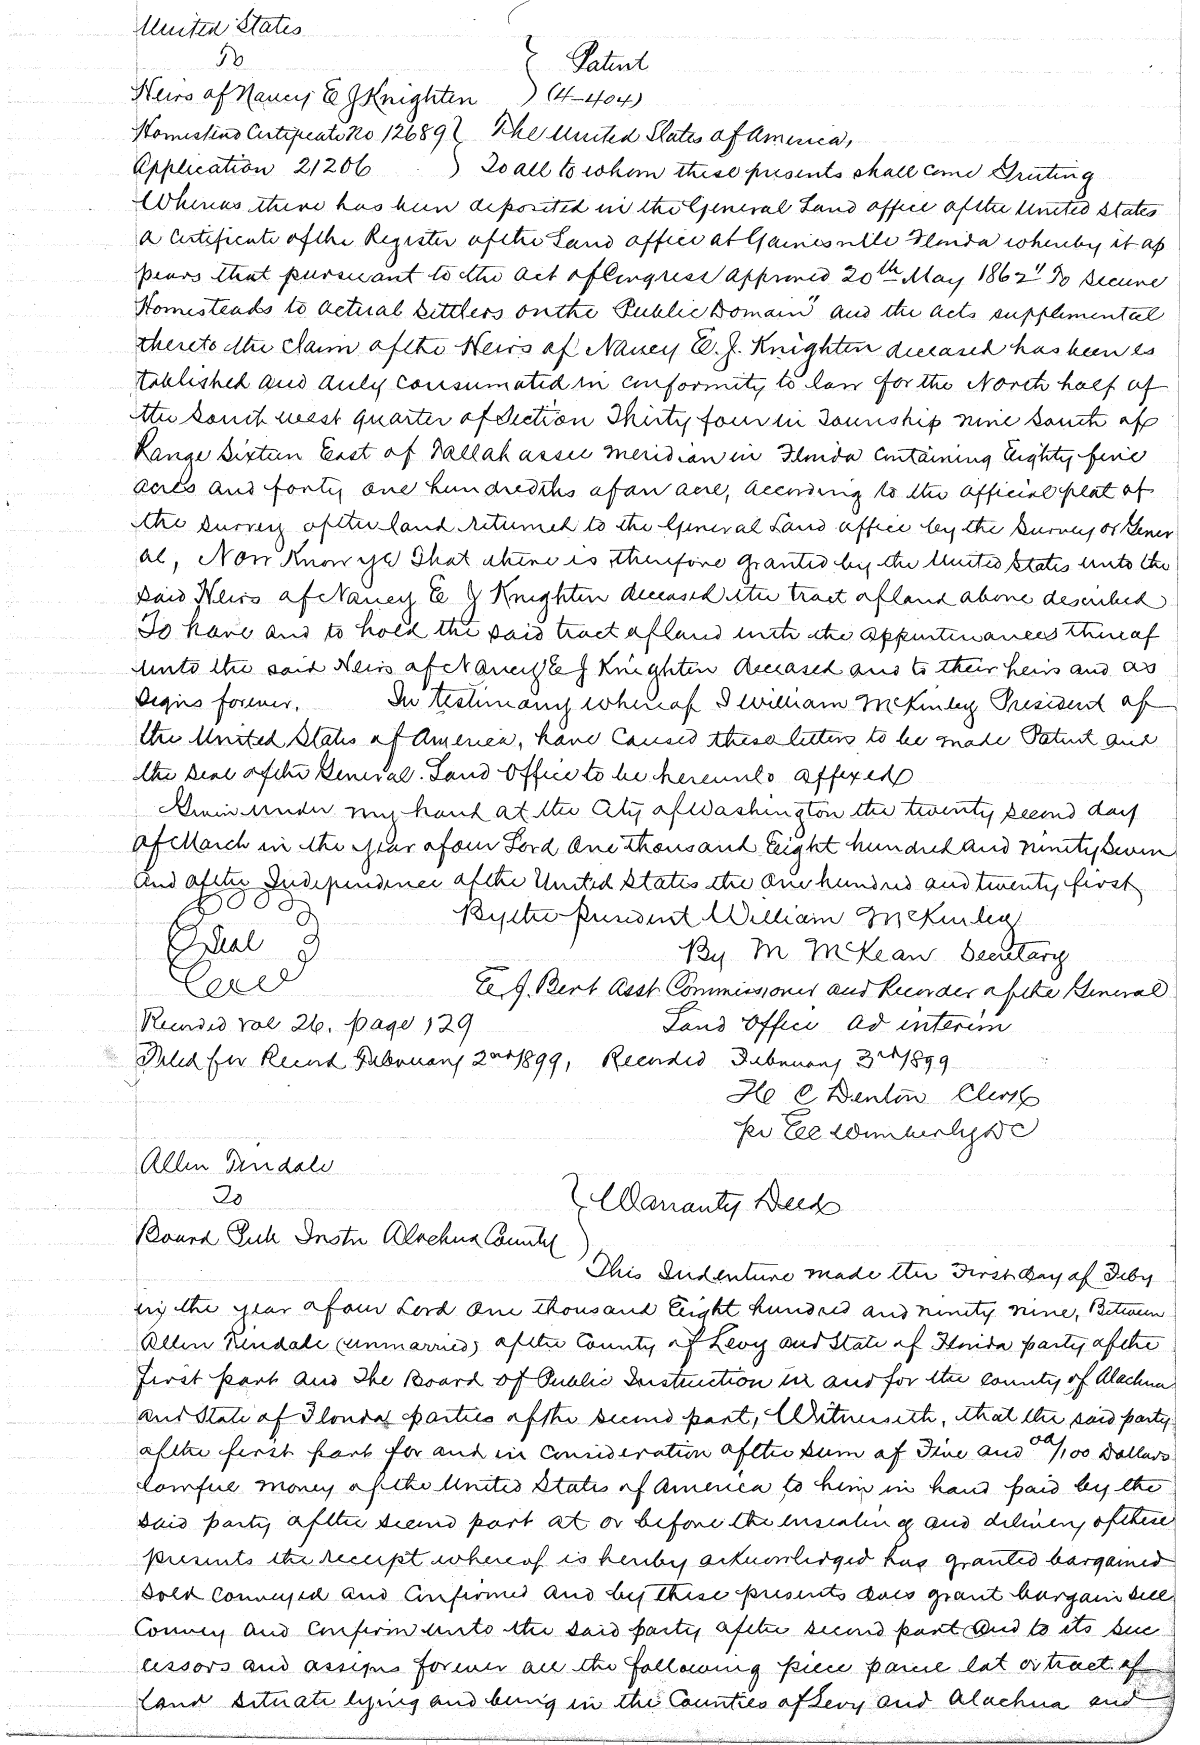 United States
To
Patent
Heirs of Nancy E J Knighten (4-404)
Homestead Certificate No 12689 The United States of America,
Application 21206 To all to whom these presents shall come Greeting
Whereas there has been deposited in the General Land office of the United States
a Certificate of the Register of the Land office at Gainesville Florida whereby it ap
pears that pursuant to the Act of Congress approved 20th May 1862 "To secure
Homesteads to actual settlers on the Public Domain" and the acts supplemental
thereto the claim of the Heirs of Nancy E. J. Knighten deceased has been es
tablished and duly consumated in conformity to law for the North half of
the South west quarter of Section Thirty four in Township nine South of
Range Sixteen East of Tallahassee meridian in Florida containing Eighty five
acres and forty one hundredths of an acre, according to the official plat of
the survey of the land returned to the General Land office by the Surveyor Gener
al, Now Know ye That there is therefore granted by the United States unto the
said Heirs of Nancy E J Knighten deceased the tract of land above described
To have and to hold the said tract of land with the appurtinances thereof
unto the said Heirs of Nancy E J Knighten deceased and to their heirs and as
signs forever. In testimony whereof I William McKinley President of
the United States of America, have caused these letters to be made Patent and
the seal of the General Land Office to be hereunto affixed
Given under my hand at the City of Washington the twenty second day
of March in the year of our Lord One thousand Eight hundred and ninety seven
and of the Independence of the United States the One hundred and twenty first
By the president William McKinley
Seal
By M McKean Secretary
E. J. Best Asst Commissioner and Recorder of the General
Recorded vol 26. page 129 Land Office ad interim
Filed for Record February 2nd 1899, Recorded February 3rd 1899
H C Denton Clerk
per Wimberly DC
Allen Tindale
To
Warranty Deed
Board Pub Instn Alachua County
This Indenture made the First day of Feby
in the year of our Lord One thousand Eight hundred and ninety nine, Between
Allen Tindale (unmarried) of the County of Levy and State of Florida party of the
first part and The Board of Public Instruction in and for the county of Alachua
and State of Florida parties of the second part, Witnesseth, that the said party
of the first part for and in consideration of the sum of Five and 00/100 Dollars
lawful money of the United States of America to him in hand paid by the
said party of the second part at or before the ensealing and delivery of these
presents the receipt whereof is hereby acknowledged has granted bargained
sold conveyed and confirmed and by these presents does grant bargain sell
Convey and Confirm unto the said party of the second part and to its suc
cessors and assigns forever all the following piece parcel lot or tract of
land situate lying and being in the Counties of Levy and Alachua and